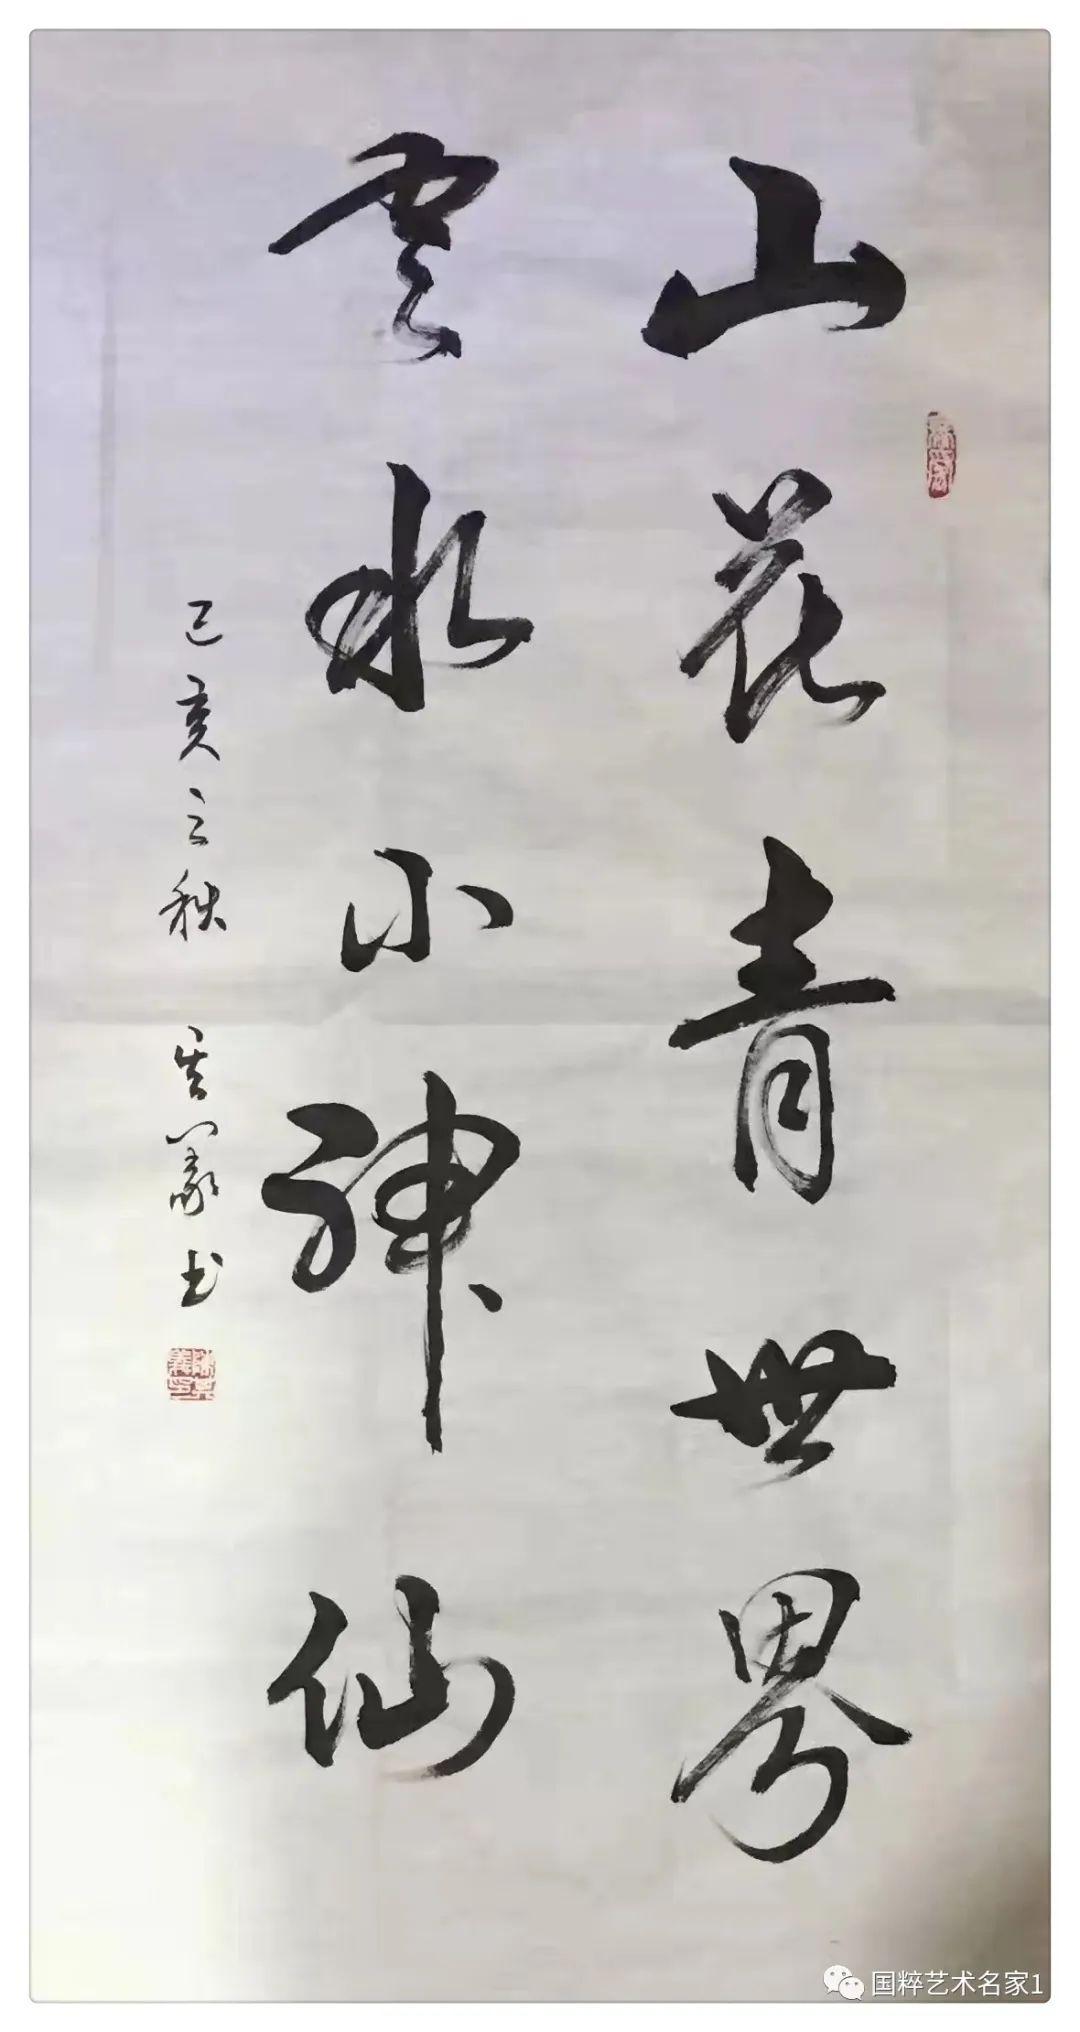 山花青世界
雲水小神仙
己亥之秋 其義书
国粹艺术名家1